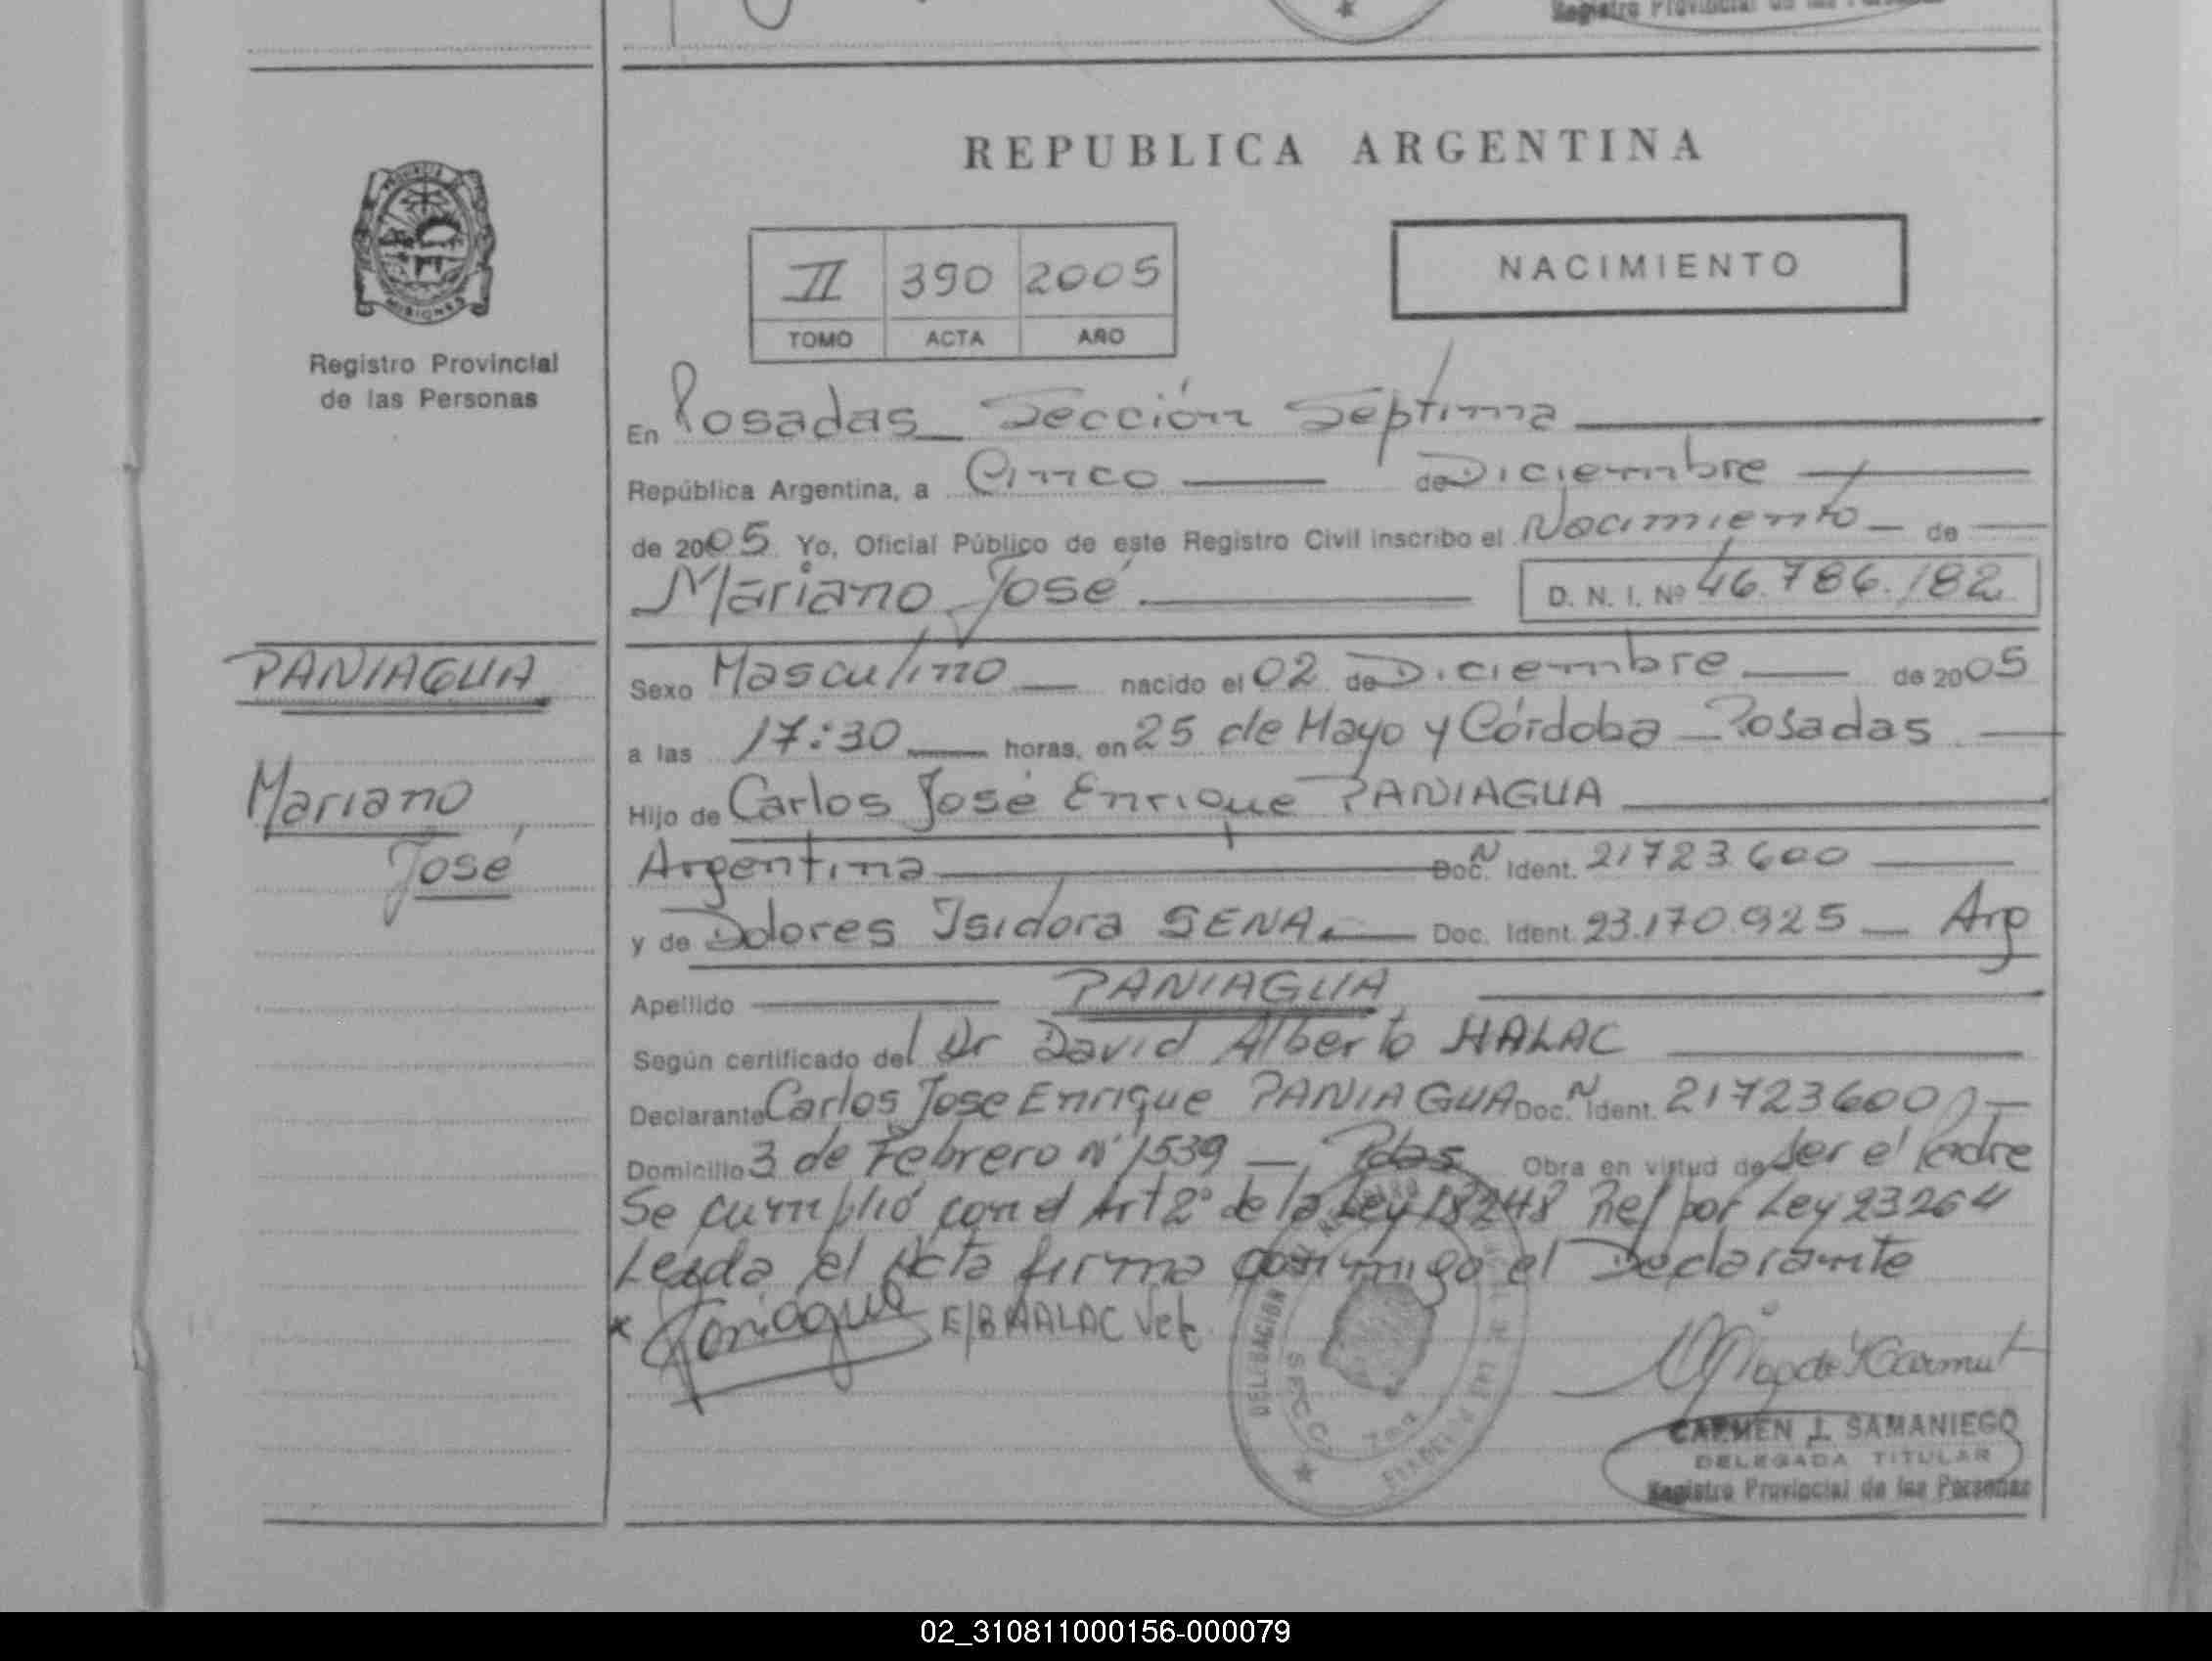 Registro Provincial de las Personas
REPUBLICA ARGENTINA
PROVINCIA
MISIONES
Registro Provincial
de las Personas
II 390 2005
TOMO ACTA AÑO
NACIMIENTO
En Posadas Sección Séptima
República Argentina, a Cinco de Diciembre
de 2005 Yo, Oficial Público de este Registro Civil inscribo el Nacimiento de
Mariano José D. N. I. Nº 46.786.182
PANIAGUA
Mariano
José
Sexo Masculino nacido el 02 de Diciembre de 2005
a las 17:30 horas, en 25 de Mayo y Córdoba Posadas
Hijo de Carlos José Enrique PANIAGUA
Argentina Doc. N Ident. 21723.600
y de Dolores Isidora SENA Doc. Ident. 23.170.925 Arg
Apellido PANIAGUA
Según certificado del Dr David Alberto HALAC
Declarante Carlos Jose Enrique PANIAGUA Doc. N Ident. 21723600
Domicilio 3 de Febrero Nº 1539 Pdas Obra en virtud de Ser el Padre
Se cumplió con el Art 2º de la Ley 18248 Ref por Ley 23264
Leida el Acta firma conmigo el Declarante
x Paniagua E/B HALAC Vale
DELEGACION
CARMEN J. SAMANIEGO
DELEGADA TITULAR
Registro Provincial de las Personas
02_310811000156-000079